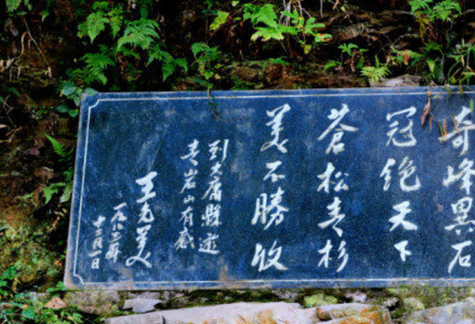 奇峰異石
冠绝天下
苍松青杉
美不勝收
到大庸县逰
青岩山有感
王光美
一九八二年
十二月一日